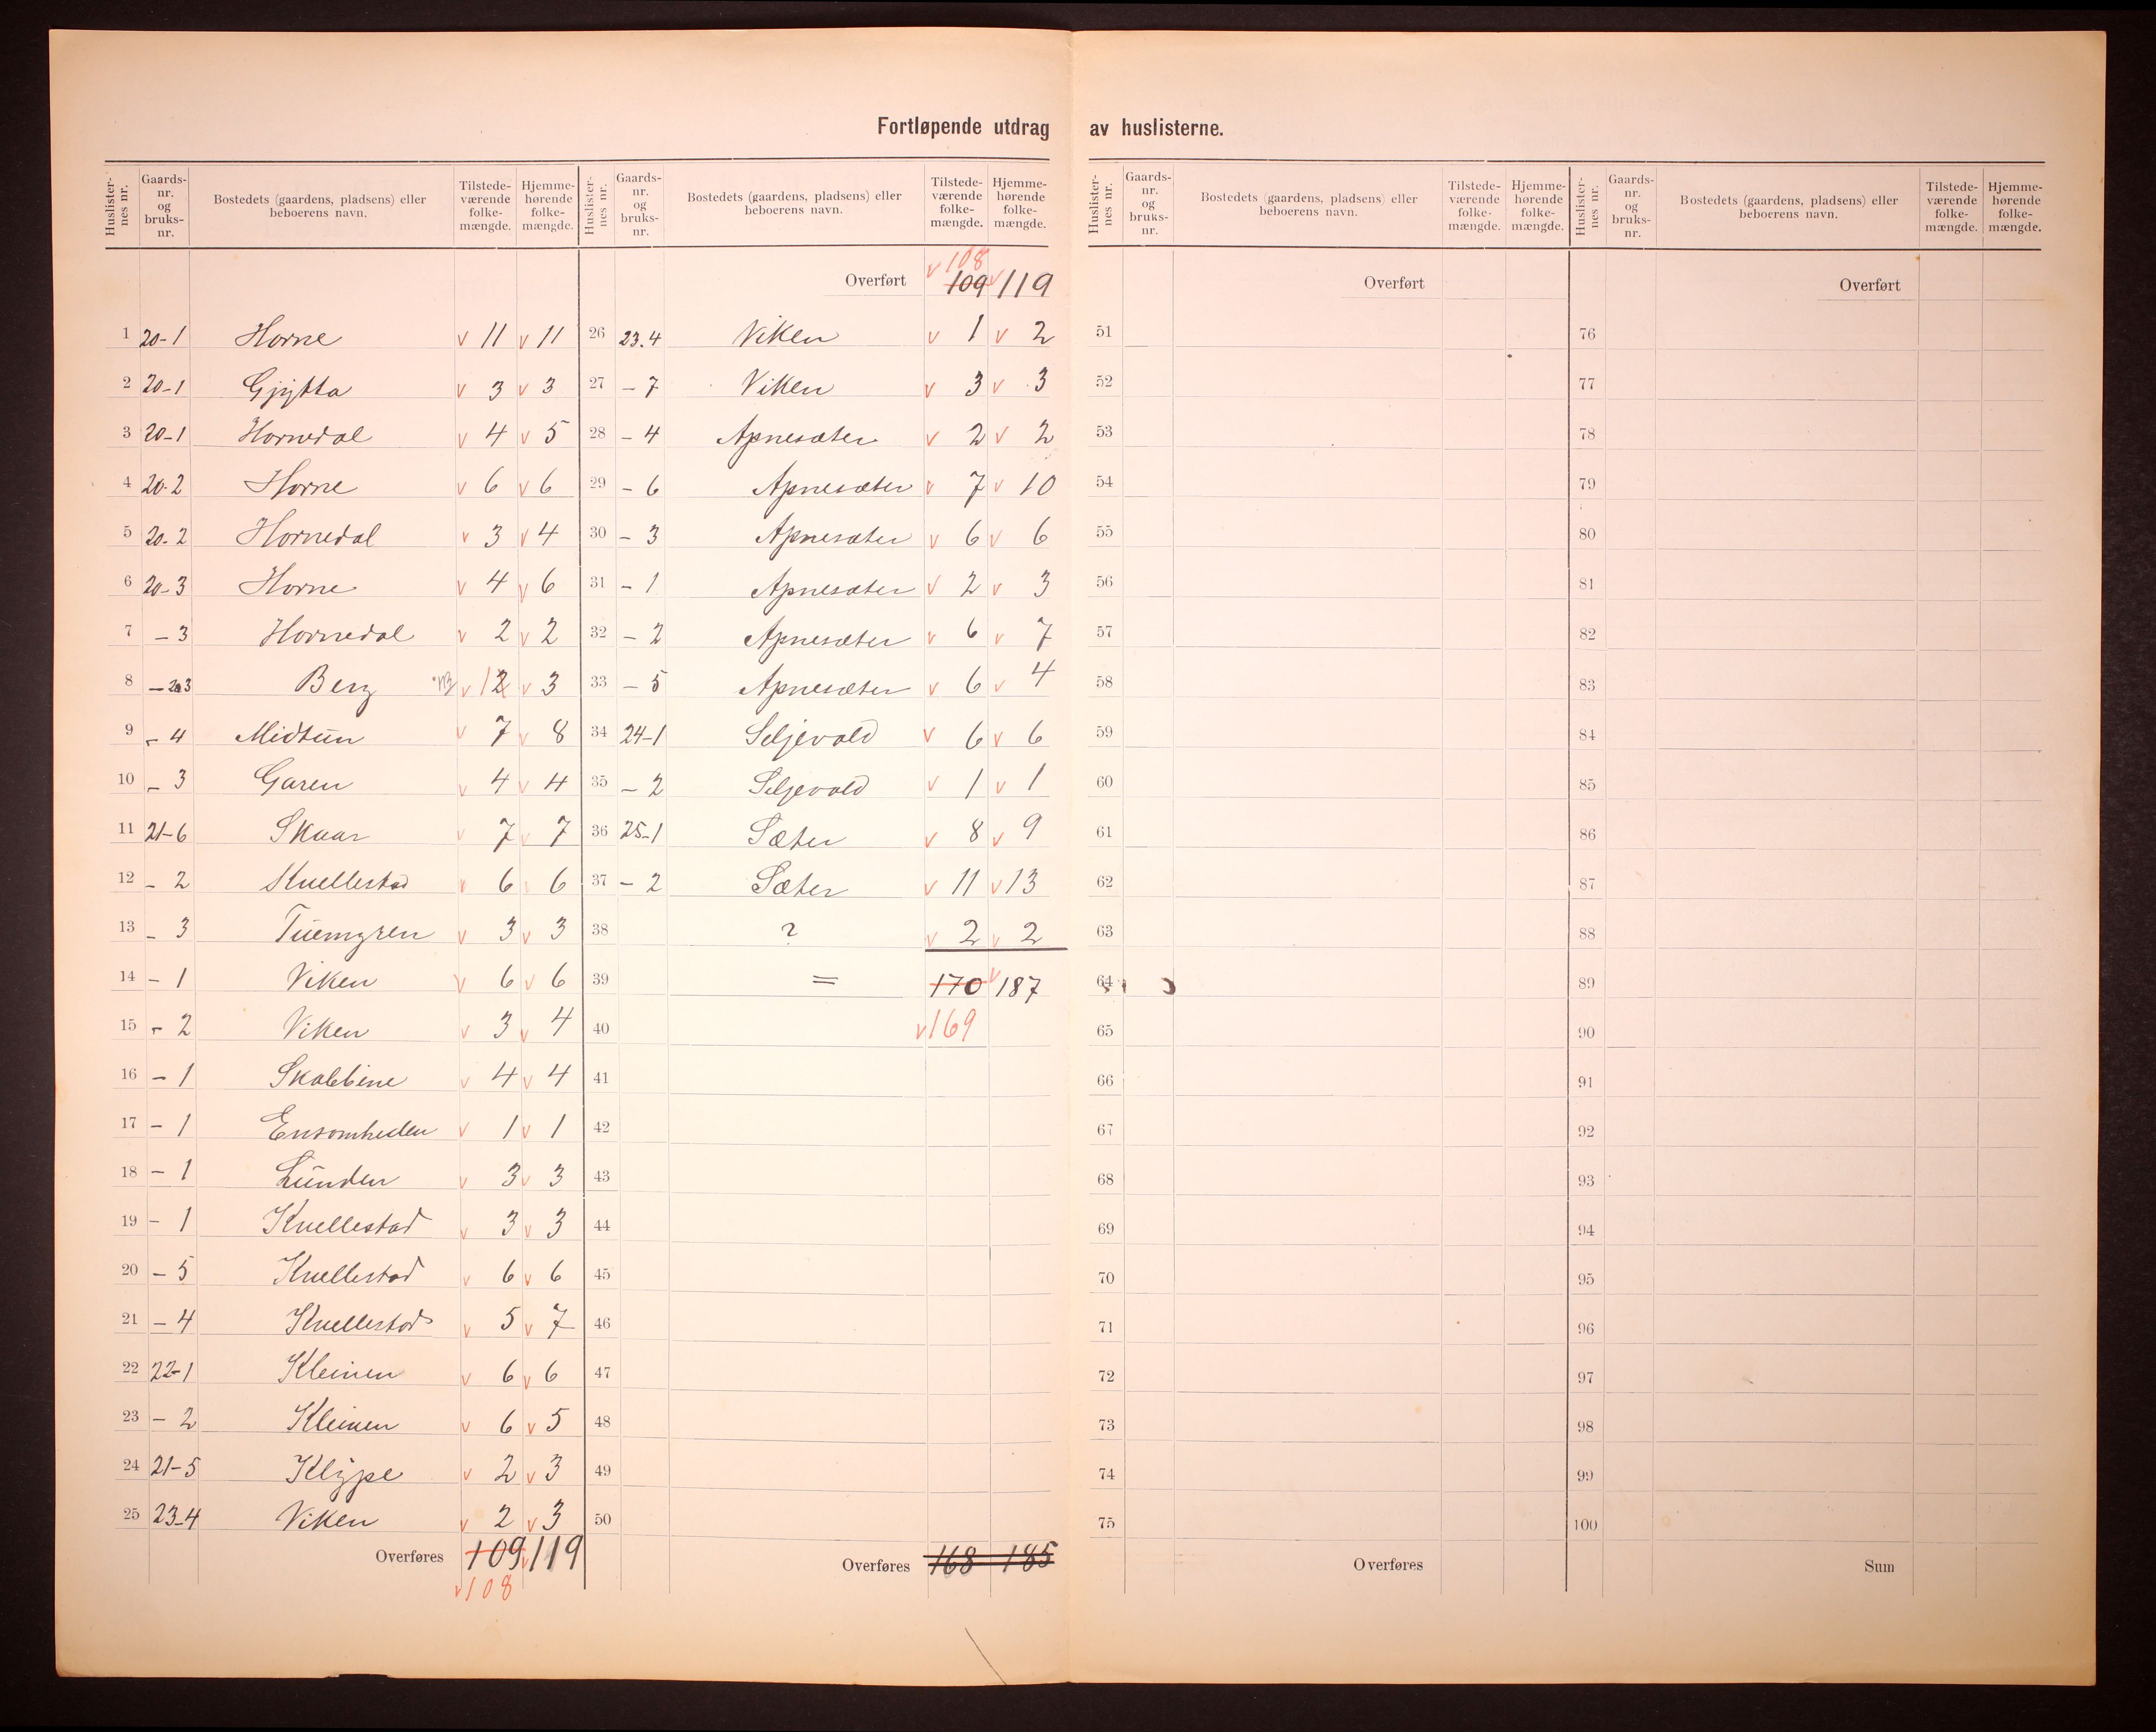 Fortløpende utdrag av huslisterne.
Huslisternes nr. | Gaardsnr. og bruksnr. | Bostedets (gaardens, pladsens) eller beboerens navn. | Tilstedeværende folkemængde. | Hjemmehørende folkemængde.
1 20-1 Horne v 11 v 11
2 20-1 Gjytta v 3 v 3
3 20-1 Hornedal v 4 v 5
4 20-2 Horne v 6 v 6
5 20-2 Hornedal v 3 v 4
6 20-3 Horne v 4 v 6
7 - 3 Hornedal v 2 v 2
8 - 203 Berg v 1 2 v 3
9 - 4 Midtun v 7 v 8
10 - 3 Garen v 4 v 4
11 21-6 Skaar v 7 v 7
12 - 2 Knellestad v 6 6
13 - 3 Tuemyren v 3 v 3
14 - 1 Viken v 6 v 6
15 - 2 Viken v 3 v 4
16 - 1 Skabbine v 4 v 4
17 - 1 Ensomheden v 1 v 1
18 - 1 Lunden v 3 v 3
19 - 1 Knellestad v 3 v 3
20 - 5 Knellestad v 6 v 6
21 - 4 Knellestad v 5 v 7
22 22-1 Kleinen v 6 v 6
23 - 2 Kleinen v 6 v 5
24 21-5 Klype v 2 v 3
25 23-4 Viken v 2 v 3
Overføres 109 v 119
v 108
Huslisternes nr. | Gaardsnr. og bruksnr. | Bostedets (gaardens, pladsens) eller beboerens navn. | Tilstedeværende folkemængde. | Hjemmehørende folkemængde.
v 108
Overført 109 v 119
26 23.4 Viken v 1 v 2
27 - 7 Viken v 3 v 3
28 - 4 Apnesæter v 2 v 2
29 - 6 Apnesæter v 7 v 10
30 - 3 Apnesæter v 6 v 6
31 - 1 Apnesæter v 2 v 3
32 - 2 Apnesæter v 6 v 7
33 - 5 Apnesæter v 6 v 4
34 24-1 Seljevold v 6 v 6
35 - 2 Seljevold v 1 v 1
36 25-1 Sæter v 8 v 9
37 - 2 Sæter v 11 v 13
38 ? v 2 v 2
39 = 170 v 187
40 v 169
41
42
43
44
45
46
47
48
49
50
Overføres 168 185
Huslisternes nr. | Gaardsnr. og bruksnr. | Bostedets (gaardens, pladsens) eller beboerens navn. | Tilstedeværende folkemængde. | Hjemmehørende folkemængde.
Overført
51
52
53
54
55
56
57
58
59
60
61
62
63
64
65
66
67
68
69
70
71
72
73
74
75
Overføres
Huslisternes nr. | Gaardsnr. og bruksnr. | Bostedets (gaardens, pladsens) eller beboerens navn. | Tilstedeværende folkemængde. | Hjemmehørende folkemængde.
Overført
76
77
78
79
80
81
82
83
84
85
86
87
88
89
90
91
92
93
94
95
96
97
98
99
100
Sum